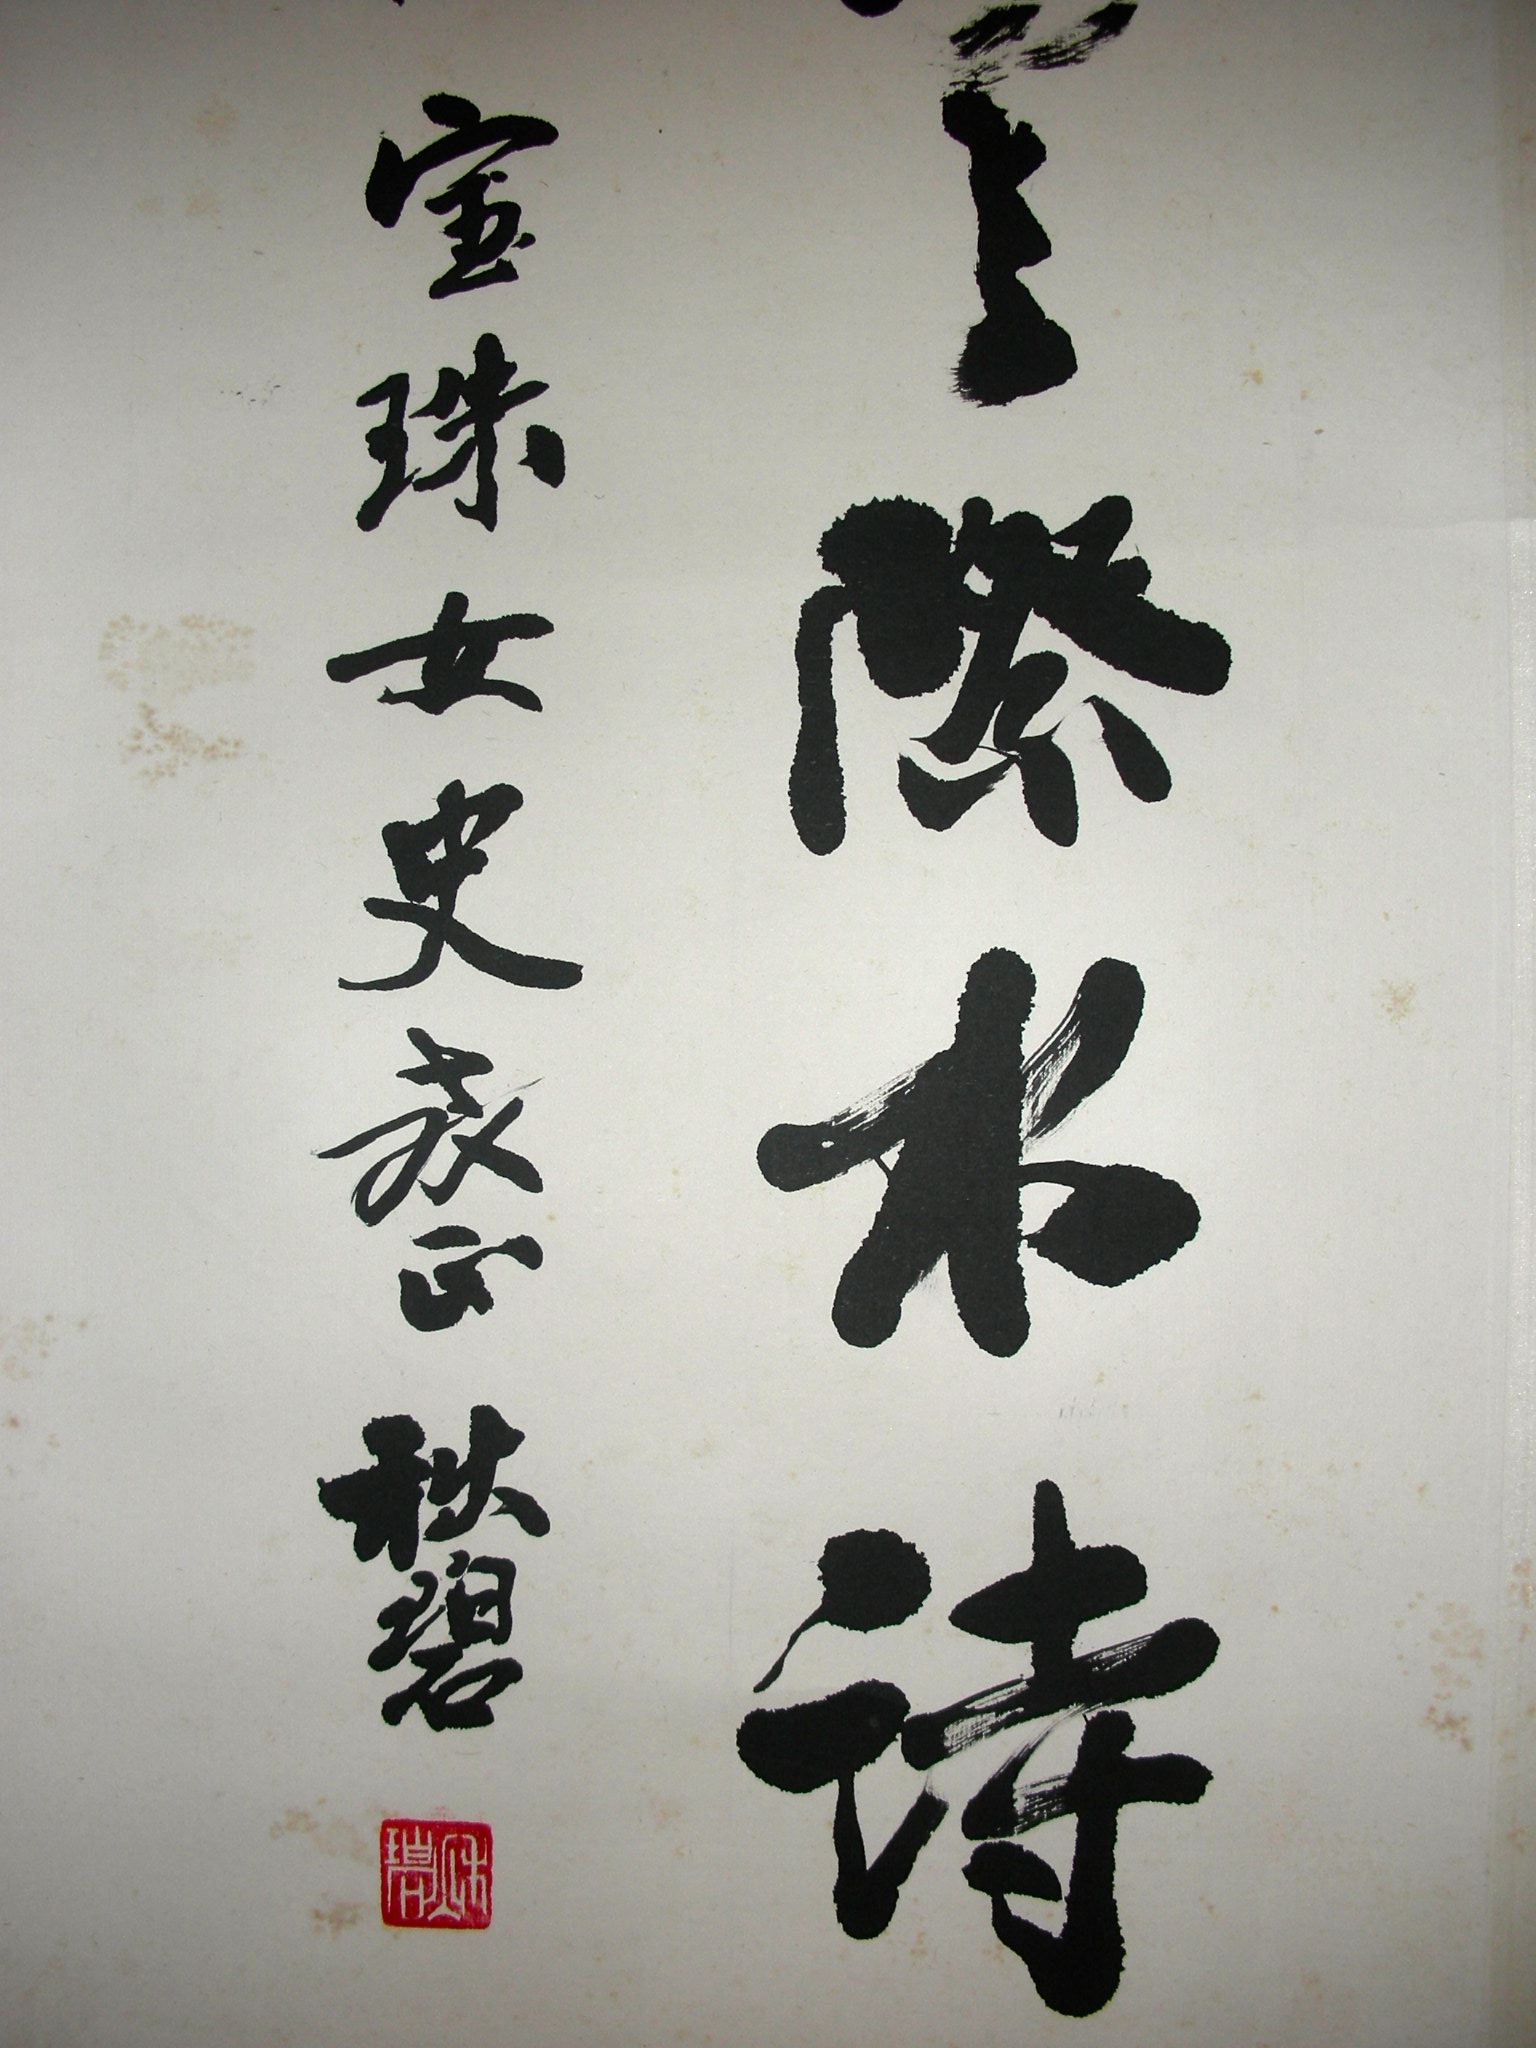 際水詩
宝珠女史教正 秋碧